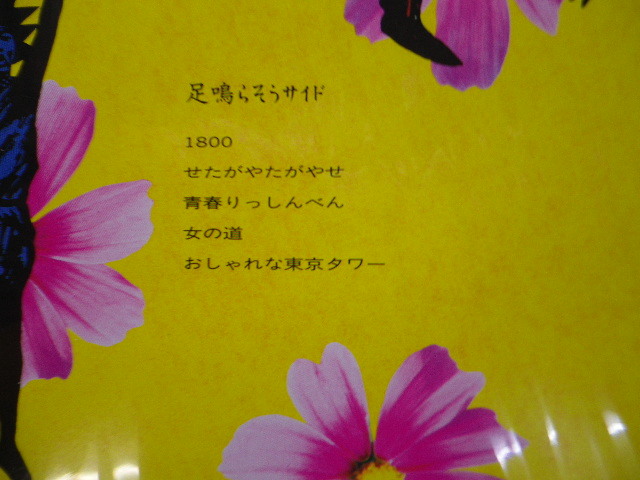 足鳴らそうサイド
1800
せたがやたがやせ
青春りっしんべん
女の道
おしゃれな東京タワー